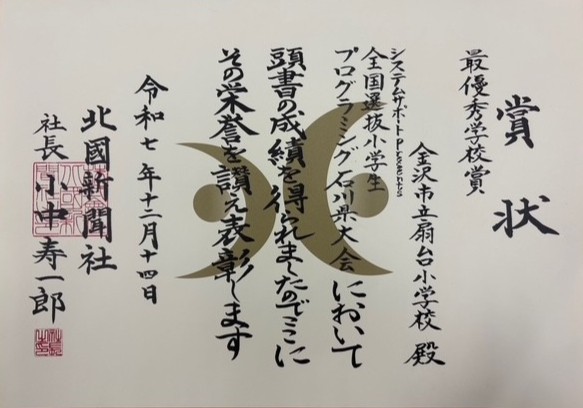 賞状
最優秀学校賞
金沢市立扇台小学校 殿
システムサポートpresents
全国選抜小学生
プログラミング石川県大会において
頭書の成績を得られましたのでここに
その栄誉を讃え表彰します
令和七年十二月十四日
北國新聞社
社長 小中寿一郎